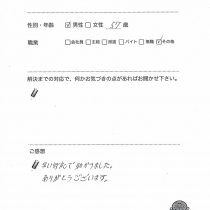 性別・年齢 ☑男性 □女性 57 歳
職業 □会社員 □主婦 □派遣 □バイト □無職 ☑その他
解決までの対応で、何かお気づきの点があればお聞かせ下さい。
ご感想
早い対応で助かりました。
ありがとうございます。